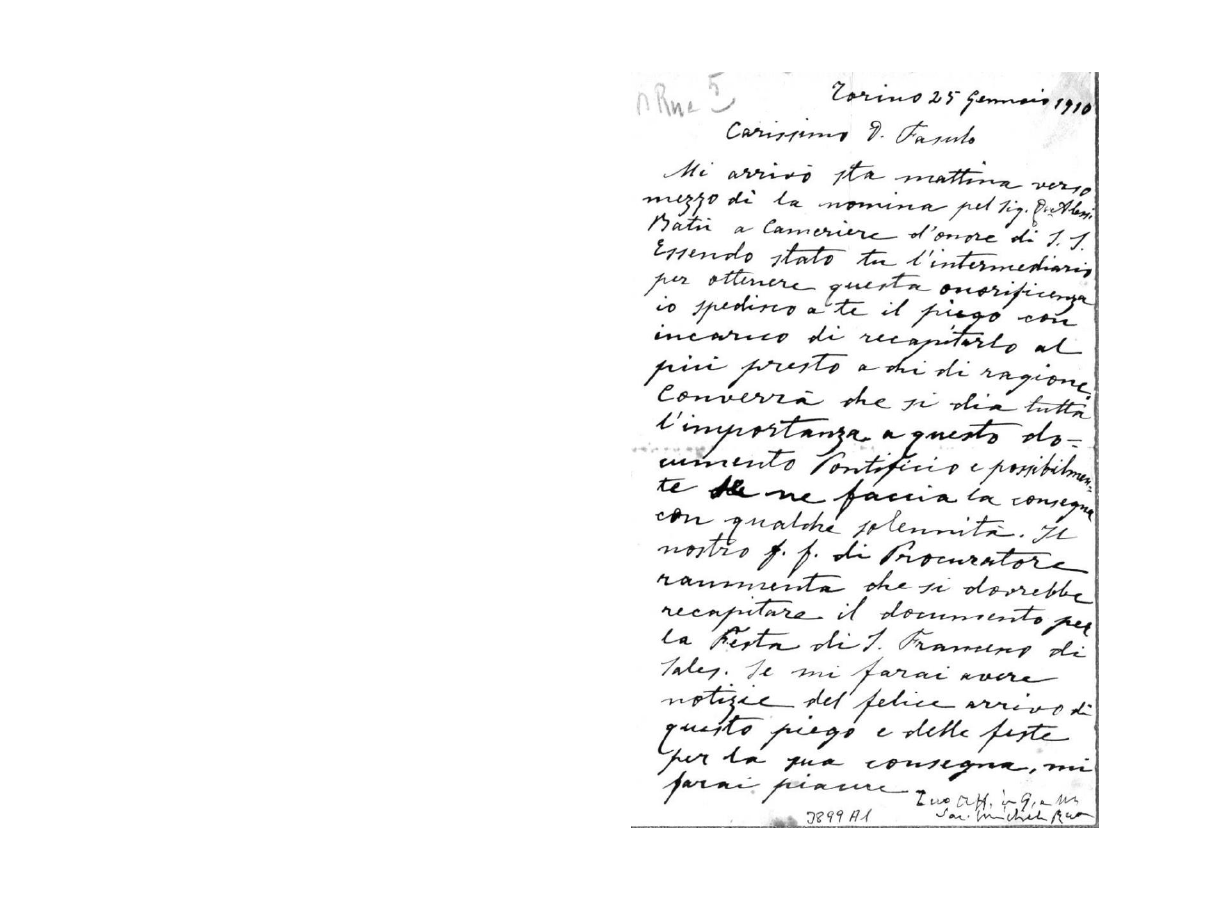 D Rua 5
Torino 25 Gennaio 1910
Carissimo D. Fasulo
Mi arrivò sta mattina verso
mezzo dì la nomina pel Sig. D.
Batù a Cameriere d'onore di S. S.
Essendo stato tu l'intermediario
per ottenere questa onorificenza
io spedisco a te il piego con
incarico di recapitarlo al
più presto a chi di ragione.
Converrà che si dia tutta
l'importanza a questo do-
cumento Pontificio e possibilmen-
te se ne faccia la consegna
con qualche solennità. Il
nostro f. f. di Procuratore
rammenta che si dovrebbe
recapitare il documento per
la Festa di S. Francesco di
Sales. Se mi farai avere
notizie del felice arrivo di
questo piego e delle feste
per la sua consegna, mi
farai piacere
Tuo aff. in G. e M.
Sac. Michele Rua
3899 A1